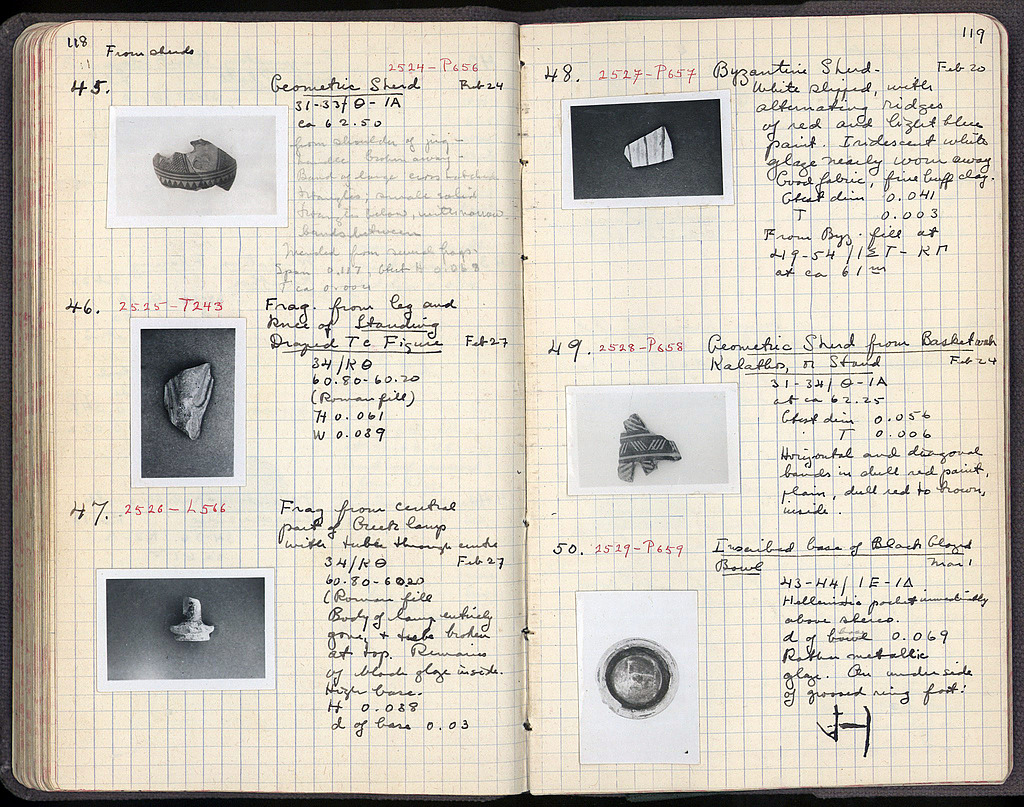 118
From sherds
45.
2524-P656
Geometric Sherd Feb 24
31-33/Θ-ΙΑ
ca 62.50
from shoulder of jug -
handle broken away -
Band of large cross hatched
triangles; small solid
triangles below, with narrow
bands between
Mended from several frags
Span 0.117, Gtest H 0.068
T ca 0.004
46. 2525-T243
Frag. from leg and
knee of Standing
Draped Tc Figure Feb 27
34/ΚΘ
60.80-60.20
(Roman fill)
H 0.061
W 0.039
47. 2526-L566
Frag from central
part of Greek lamp
with tube through centre
34/ΚΘ Feb 27
60.80-60.20
(Roman fill
Body of lamp entirely
gone, + tube broken
at top. Remains
of black glaze inside.
High base.
H 0.038
d of base 0.03
119
48. 2527-P657
Byzantine Sherd. Feb 20
White slipped, with
alternating ridges
of red and light blue
paint. Iridescent white
glaze nearly worn away
Good fabric, fine buff clay.
Gtest dim 0.041
T 0.003
From Byz. fill at
49-54/ΙΣΤ-ΚΓ
at ca 61 m
49. 2528-P658
Geometric Sherd from Basket
Kalathos, or Stand Feb 24
31-34/Θ-ΙΑ
at ca 62.25
Gtest dim 0.056
T 0.006
Horizontal and diagonal
bands in dull red paint,
plain, dull red to brown,
inside.
50. 2529-P659
Inscribed base of Black Glazed
Bowl Mar 1
43-44/ΙΕ-ΙΔ
Hellenistic pocket immediately
above stereo.
d of base 0.069
Rather metallic
glaze. On underside
of grooved ring foot: